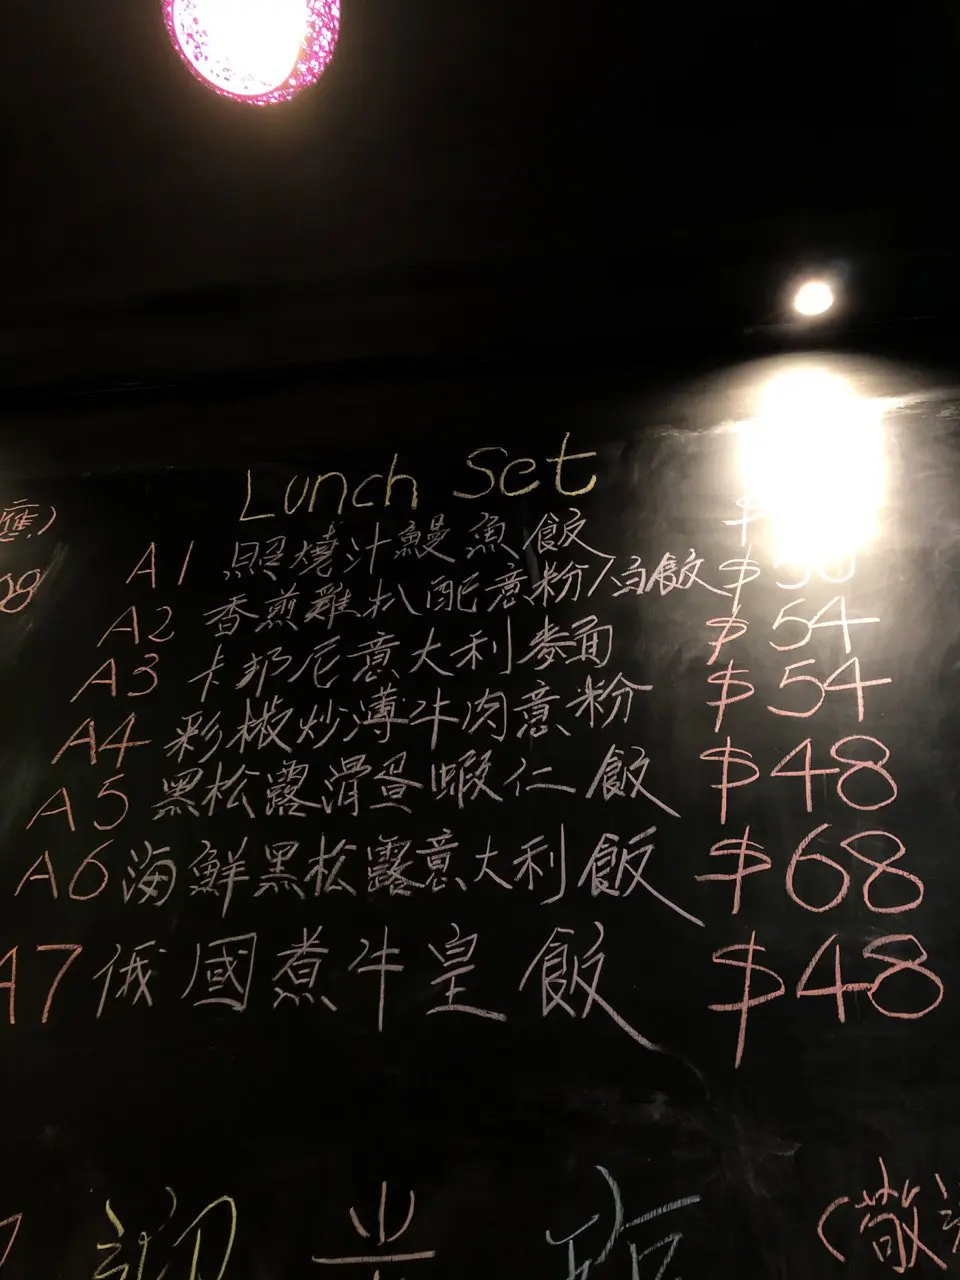 Lunch Set
應)
A1 照燒汁鰻魚飯
A2 香煎雞扒配意粉/白飯 $
A3 卡邦尼意大利麵 $54
A4 彩椒炒薄牛肉意粉 $54
A5 黑松露滑蛋蝦仁飯 $48
A6 海鮮黑松露意大利飯 $68
A7 俄國煮牛皇飯 $48
(敬